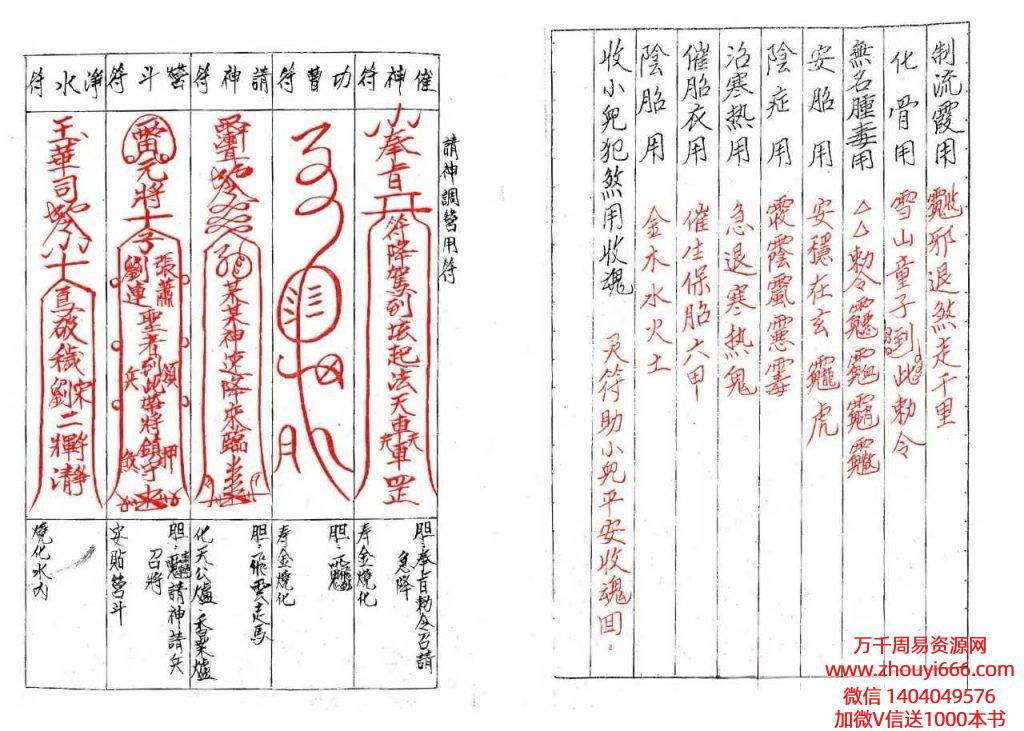 制流霞用 邪退煞走千里
化骨用 雪山童子到此勅令
無名腫毒用 勅令
安胎用 安穩在玄 虎
陰症用
治寒熱用 急退寒熱鬼
催胎衣用 催生保胎六甲
陰胎用 金木水火土
收小兒犯煞用收魂 灵符助小兒平安收魂回。
請神調營用符
催神符
奉旨 符降駕到坛起法天車 罡
胆:奉旨勅令召請
急降
寿金燒化
功曹符
胆:
寿金燒化
請神符
某某神速降來臨
胆:飛雲走馬
化天公爐、香案爐
營斗符
元將
張蕭劉連聖者到此 將鎮守
領兵押煞
胆: 請神、請兵
召將
安貼營斗
淨水符
玉華司
直破穢宋劉二 淨
燒化水內
万千周易资源网
www.zhouyi666.com
微信 1404049576
加微V信送1000本书